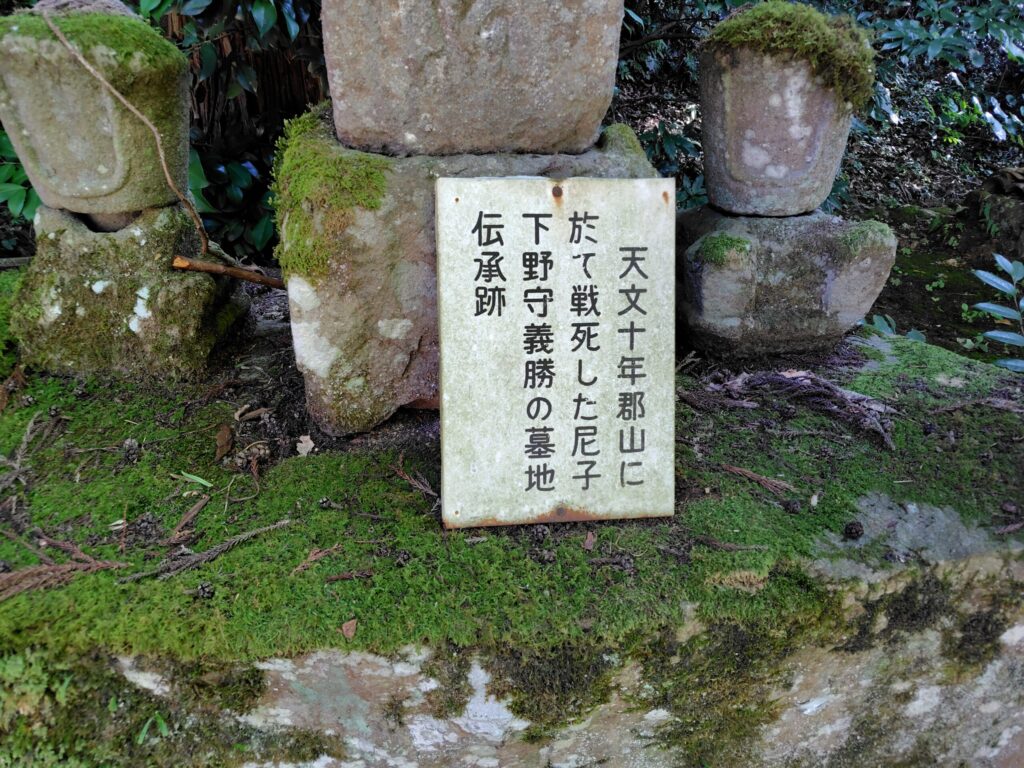 天文十年郡山に
於て戦死した尼子
下野守義勝の墓地
伝承跡